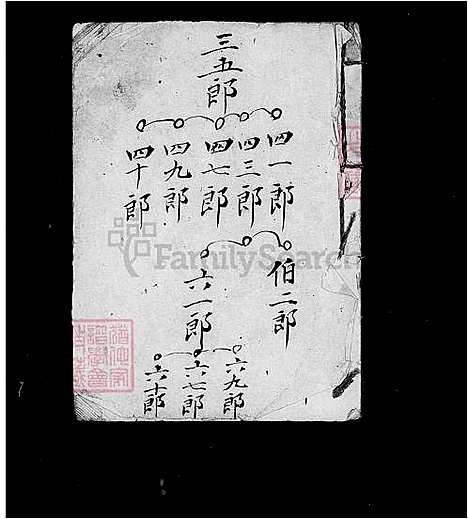 三五郎
四一郎
四三郎
四七郎
四九郎
四十郎
伯二郎
六一郎
六九郎
六七郎
六十郎
FamilySearch